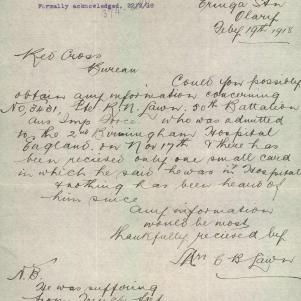 Formally acknowledged, 22/2/18
Eringa Stn
Olary
Feby 19th 1918
Red Cross
Bureau
Could you possibly
obtain any information concerning
No, 3431, Pte R. N. Lawn, 50th Battalion
Aus Imp Force. who was admitted
to the 2nd Birmingham Hospital
England. on Nov 17th & there has
been recieved only one small card
in which he said he was in Hospital
& nothing has been heard of
him since
Any information
would be most
thankfully recieved by
Mrs C B Lawn
N.B.
He was suffering
from Trench feet